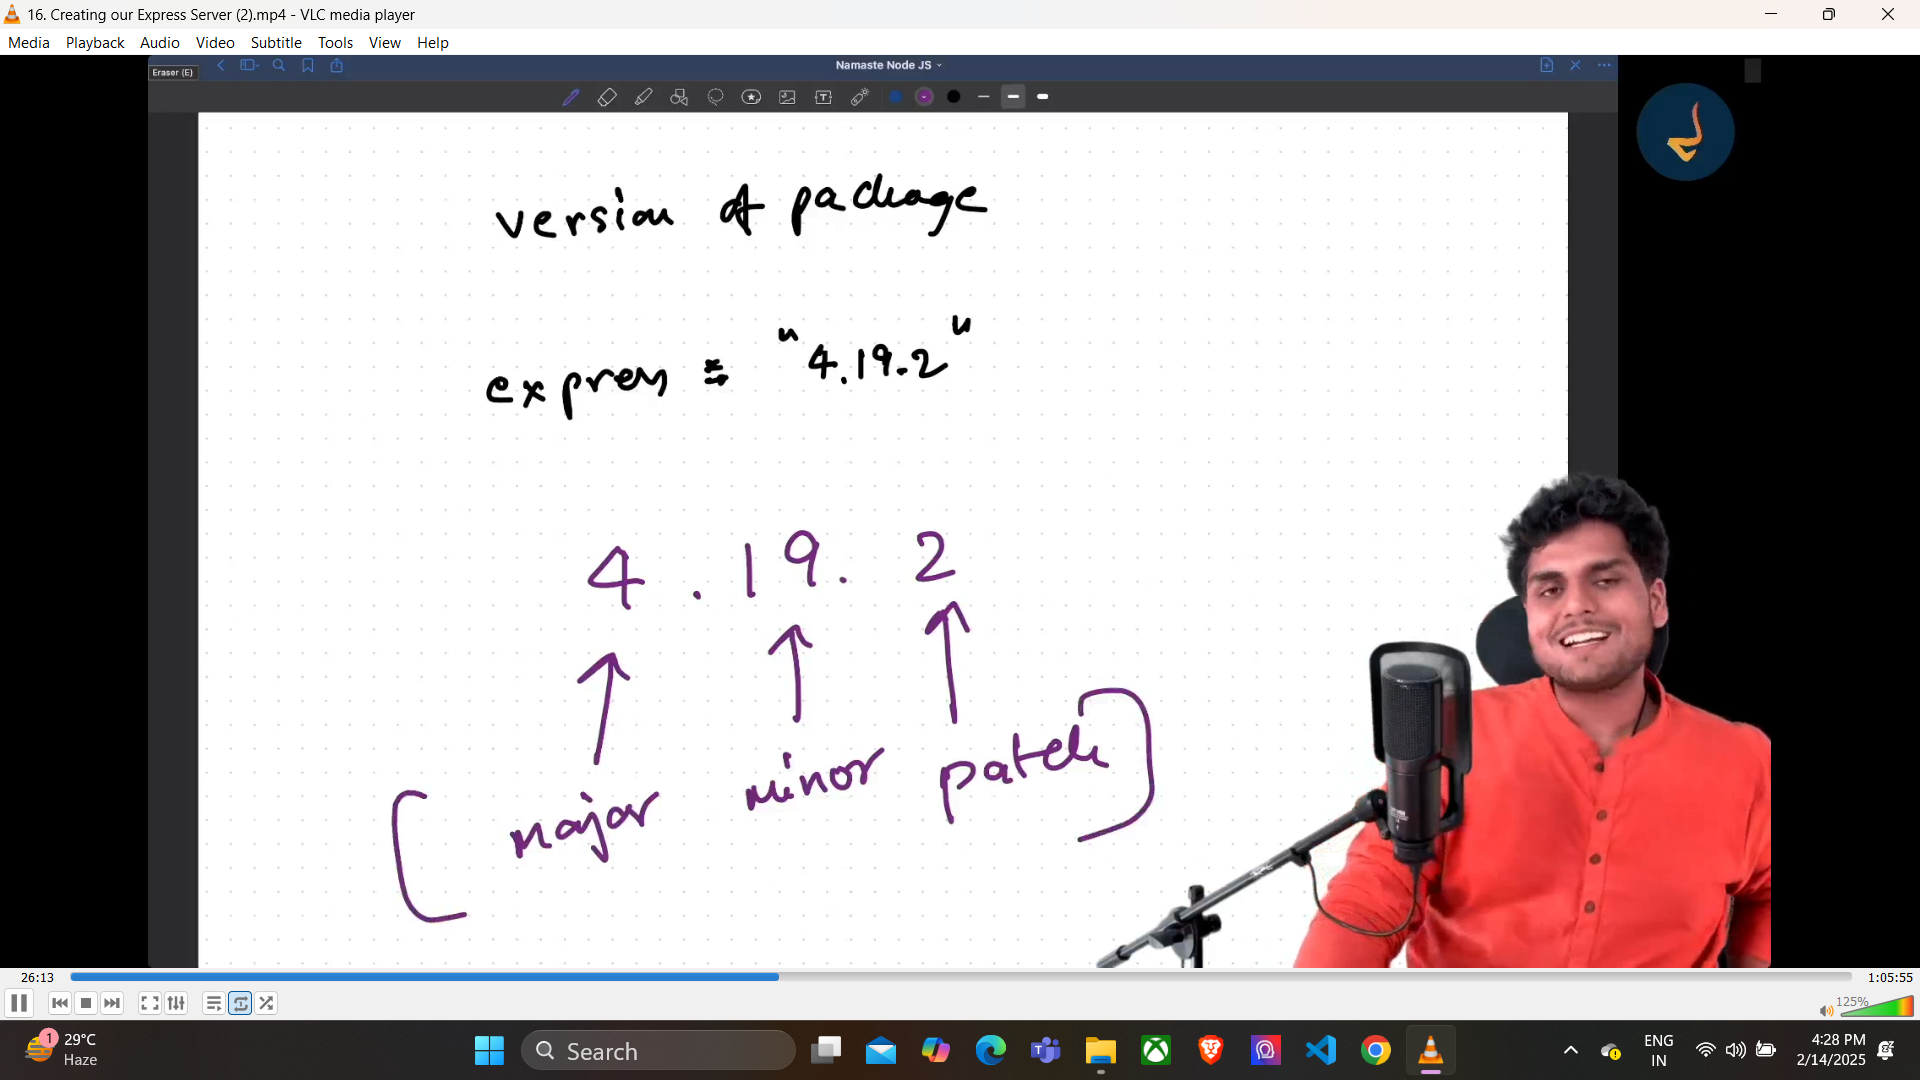 16. Creating our Express Server (2).mp4 - VLC media player
Media Playback Audio Video Subtitle Tools View Help
Eraser (E)
Namaste Node JS
version of package
express = "4.19.2"
4 . 19 . 2
major minor patch
26:13
1:05:55
125%
1
29°C
Haze
Search
ENG
IN
4:28 PM
2/14/2025